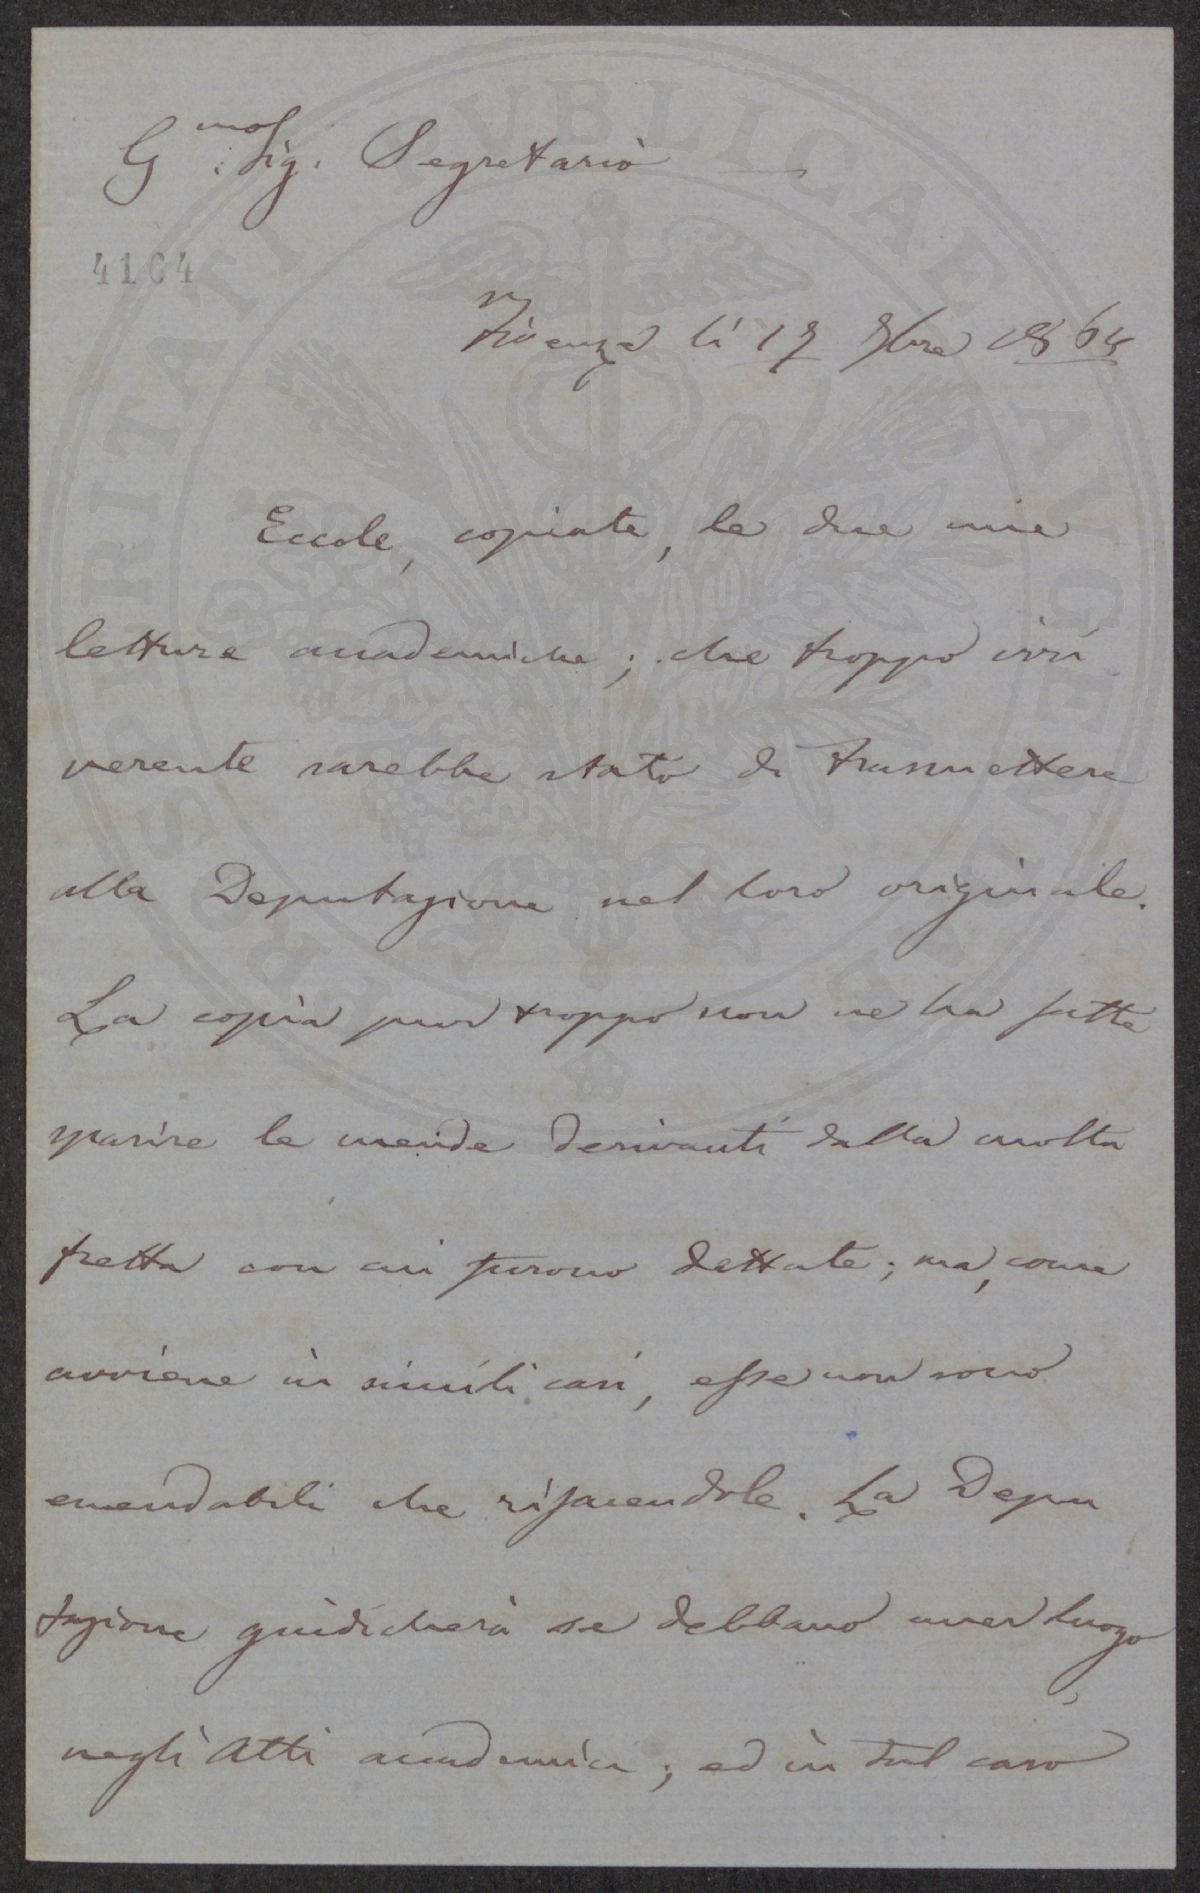 G.mo Sig. Segretario
4164
Firenze li 17 9bre 1864
Eccole, copiate, le due mie
letture accademiche; che troppo irri
verente sarebbe stato di trasmettere
alla Deputazione nel loro originale.
La copia pur troppo non ne ha fatte
sparire le mende derivanti dalla molta
fretta con cui furono dettate; ma, come
avviene in simili casi, esse non sono
emendabili che rifacendole. La Depu
tazione giudicherà se debbano aver luogo
negli Atti accademici; ed in tal caso
PROSPERITATI PUBLICAE AUGENDAE